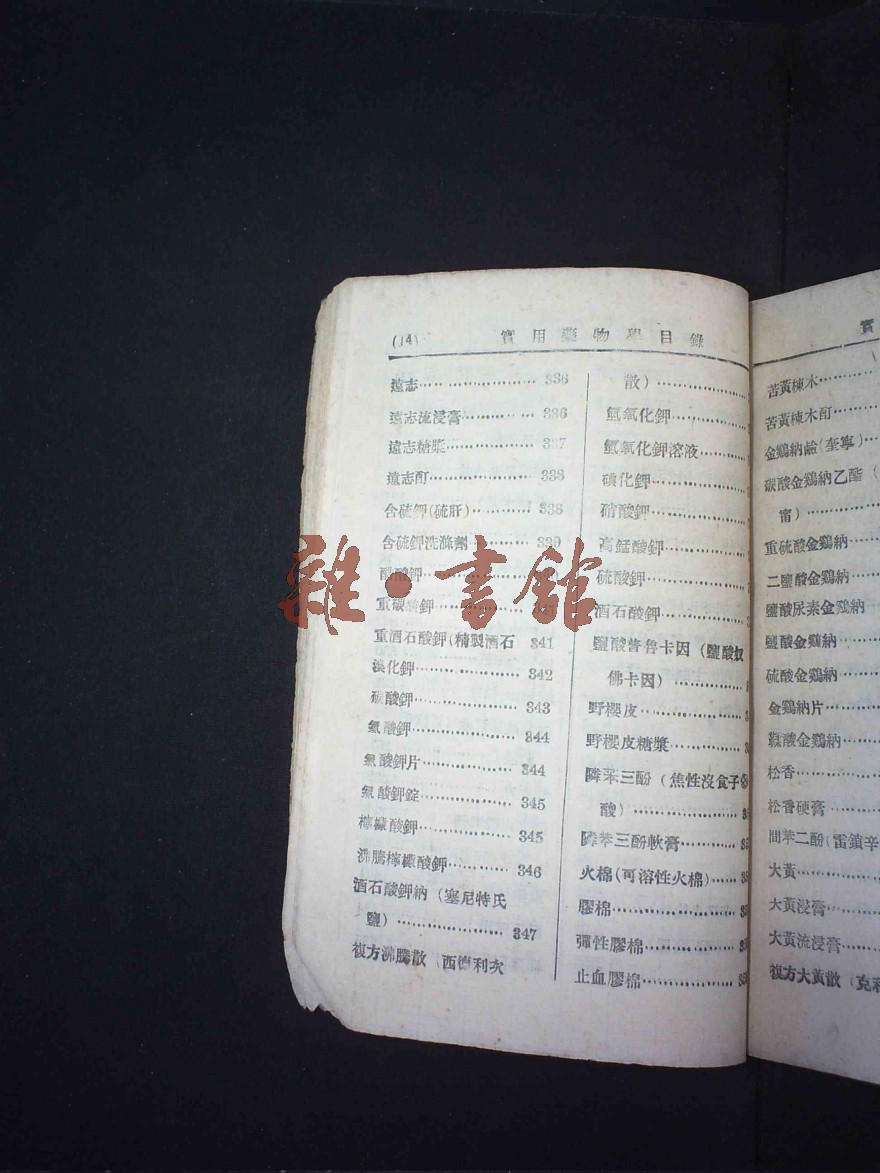 (14)
實用藥物學目錄
遠志 336
遠志流浸膏 336
遠志糖漿 337
遠志酊 338
含硫鉀(硫肝) 338
含硫鉀洗滌劑 339
醋酸鉀
重碳酸鉀 341
重酒石酸鉀(精製酒石 341
溴化鉀 342
碳酸鉀 343
氯酸鉀 344
氯酸鉀片 344
氯酸鉀錠 345
檸檬酸鉀 345
沸騰檸檬酸鉀 346
酒石酸鉀納(塞尼特氏
鹽) 347
複方沸騰散(西德利次
散)
氫氧化鉀
氫氧化鉀溶液
碘化鉀
硝酸鉀
高錳酸鉀
硫酸鉀
酒石酸鉀
鹽酸普魯卡因(鹽酸奴
佛卡因)
野櫻皮
野櫻皮糖漿
隣苯三酚(焦性沒食子
酸)
隣苯三酚軟膏
火棉(可溶性火棉)
膠棉
彈性膠棉
止血膠棉
實
苦黃楝木
苦黃楝木酊
金鷄納鹼(奎寧)
碳酸金鷄納乙酯(
甯)
重硫酸金鷄納
二鹽酸金鷄納
鹽酸尿素金鷄納
鹽酸金鷄納
硫酸金鷄納
金鷄納片
鞣酸金鷄納
松香
松香硬膏
間苯二酚(雷鎖辛
大黃
大黃浸膏
大黃流浸膏
複方大黃散(克利
雜·書館